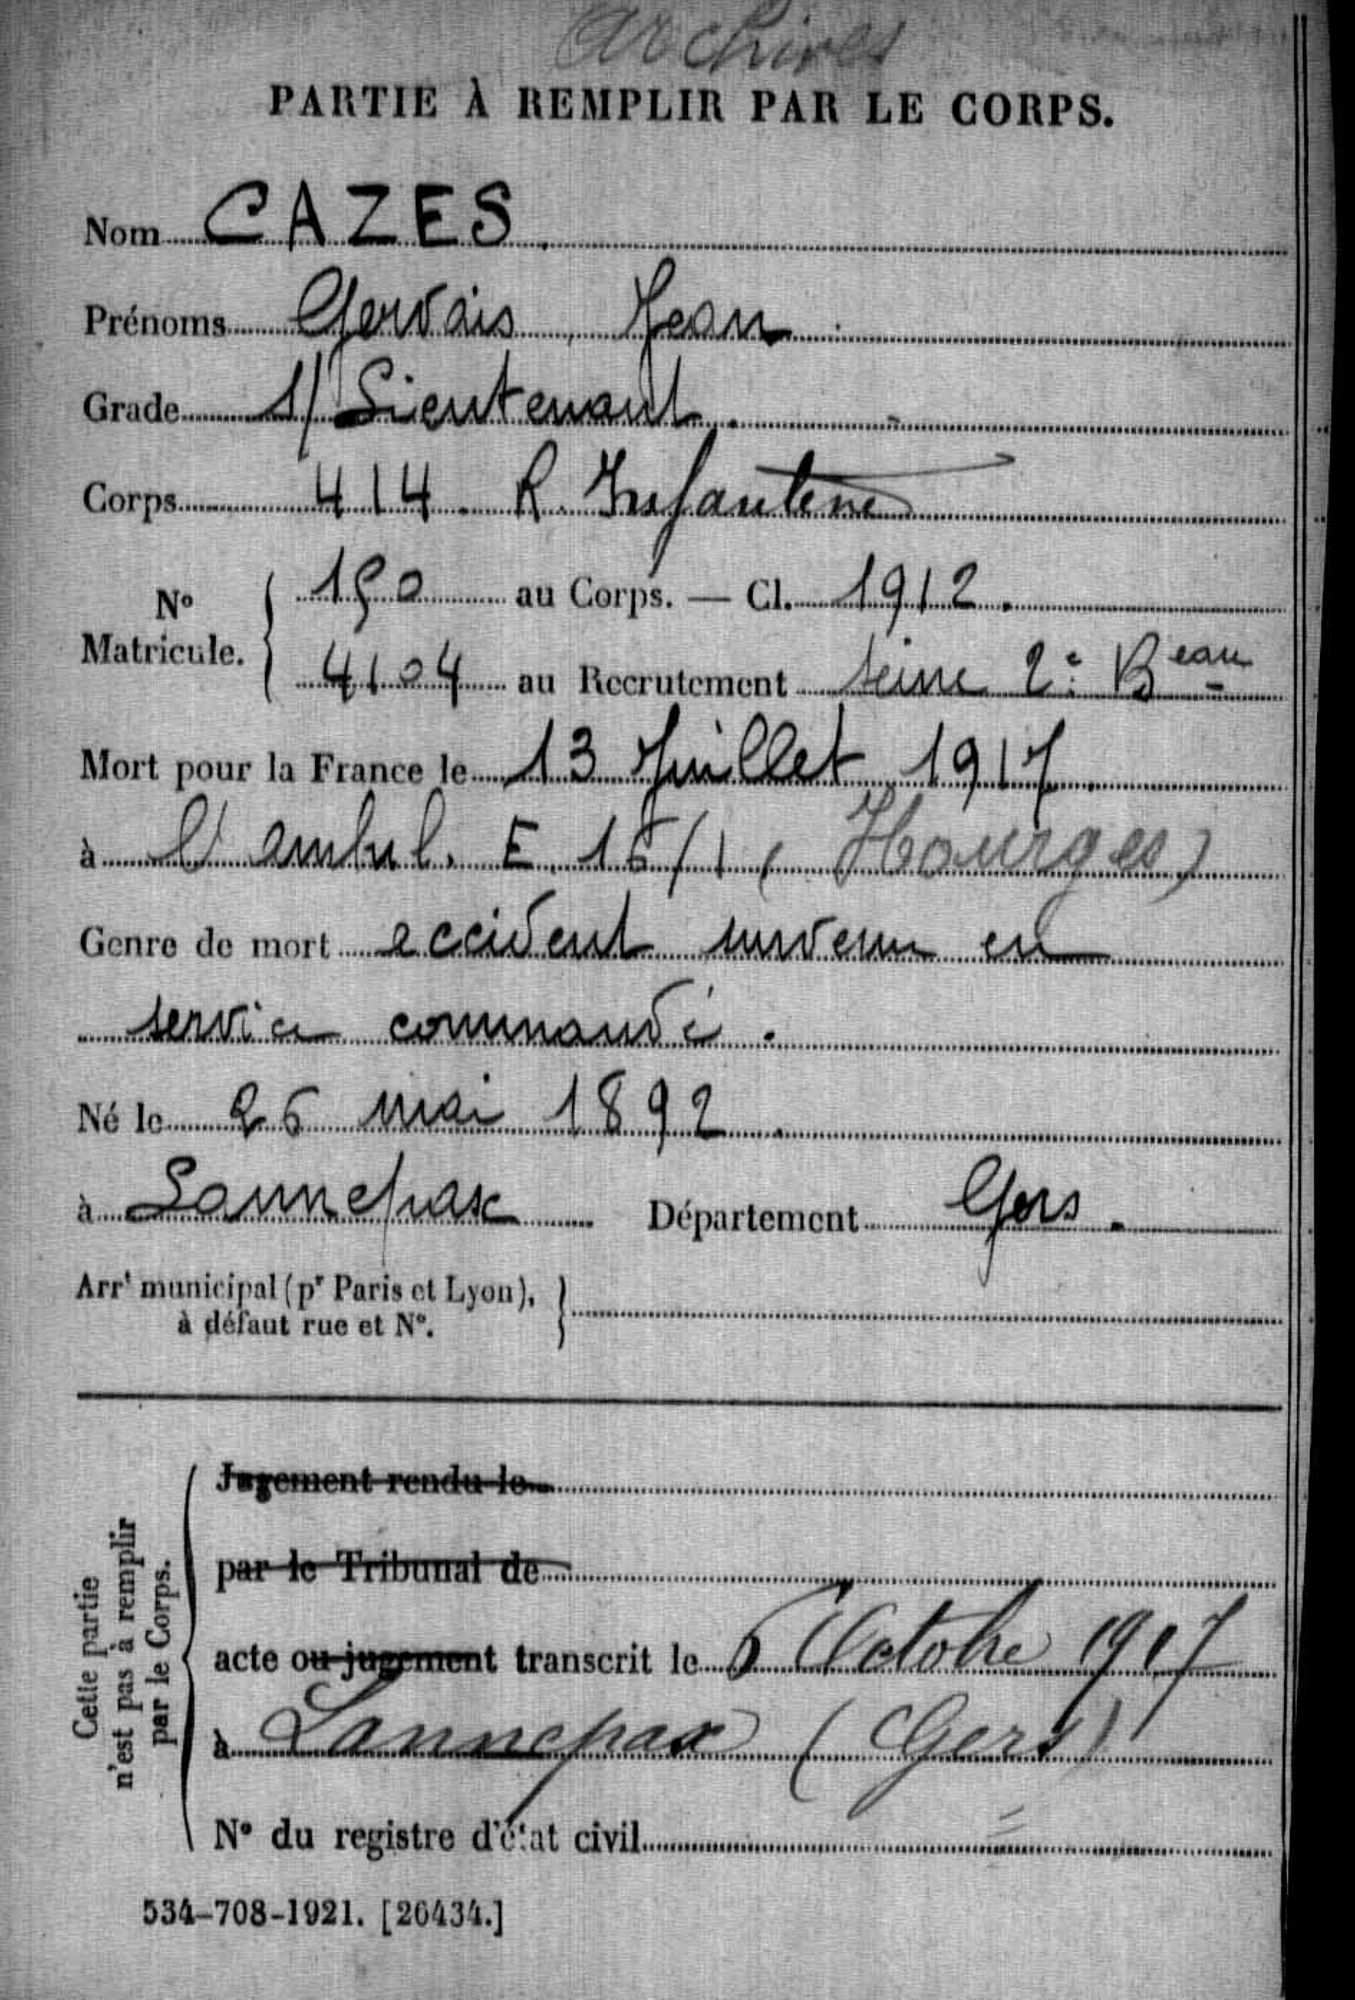 Archives
PARTIE À REMPLIR PAR LE CORPS.
Nom CAZES.
Prénoms Gervais, Jean
Grade S/Lieutenant.
Corps 414. R. Infanterie
N° Matricule. { 190 au Corps. — Cl. 1912.
4104 au Recrutement Seine 2e Beau
Mort pour la France le 13 Juillet 1917
à l'ambul. E. 16/1 (Hourges)
Genre de mort accident survenu en
service commandé.
Né le 26 mai 1892.
à Lannepax Département Gers.
Arrt municipal (pr Paris et Lyon),
à défaut rue et N°.
Cette partie
n'est pas à remplir
par le Corps.
Jugement rendu le
par le Tribunal de
acte ou jugement transcrit le 6 Octobre 1917
à Lannepax (Gers)
N° du registre d'état civil
534-708-1921. [26434.]